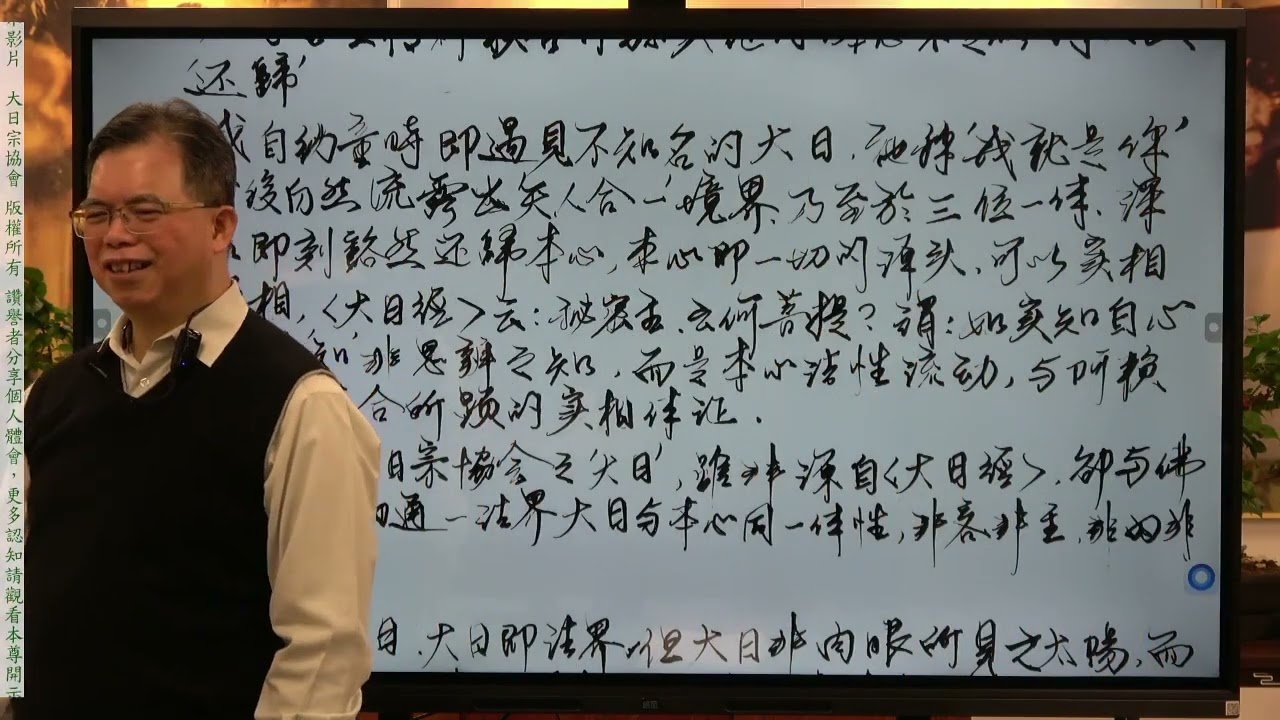 影片 大日宗協會 版權所有 讚譽者分享個人體會，更多認知請觀看本尊開示
还歸'
我自幼童時即遇見不知名的大日，祂稱'我就是你'
後自然流露出天人合一境界、乃至於三位一体、深
即刻豁然还歸本心，本心即一切的源头，可以实相
相，〈大日經〉云：秘密主，云何菩提？謂：如实知自心
'知'非思辨之知，而是本心活性流动，与所
合所顯的实相体证．
日宗協会之'大日'，雖非源自〈大日經〉，卻与佛
通一法界大日与本心同一体性，非客非主，非
日，大日即法界，但大日非肉眼所見之太陽，而